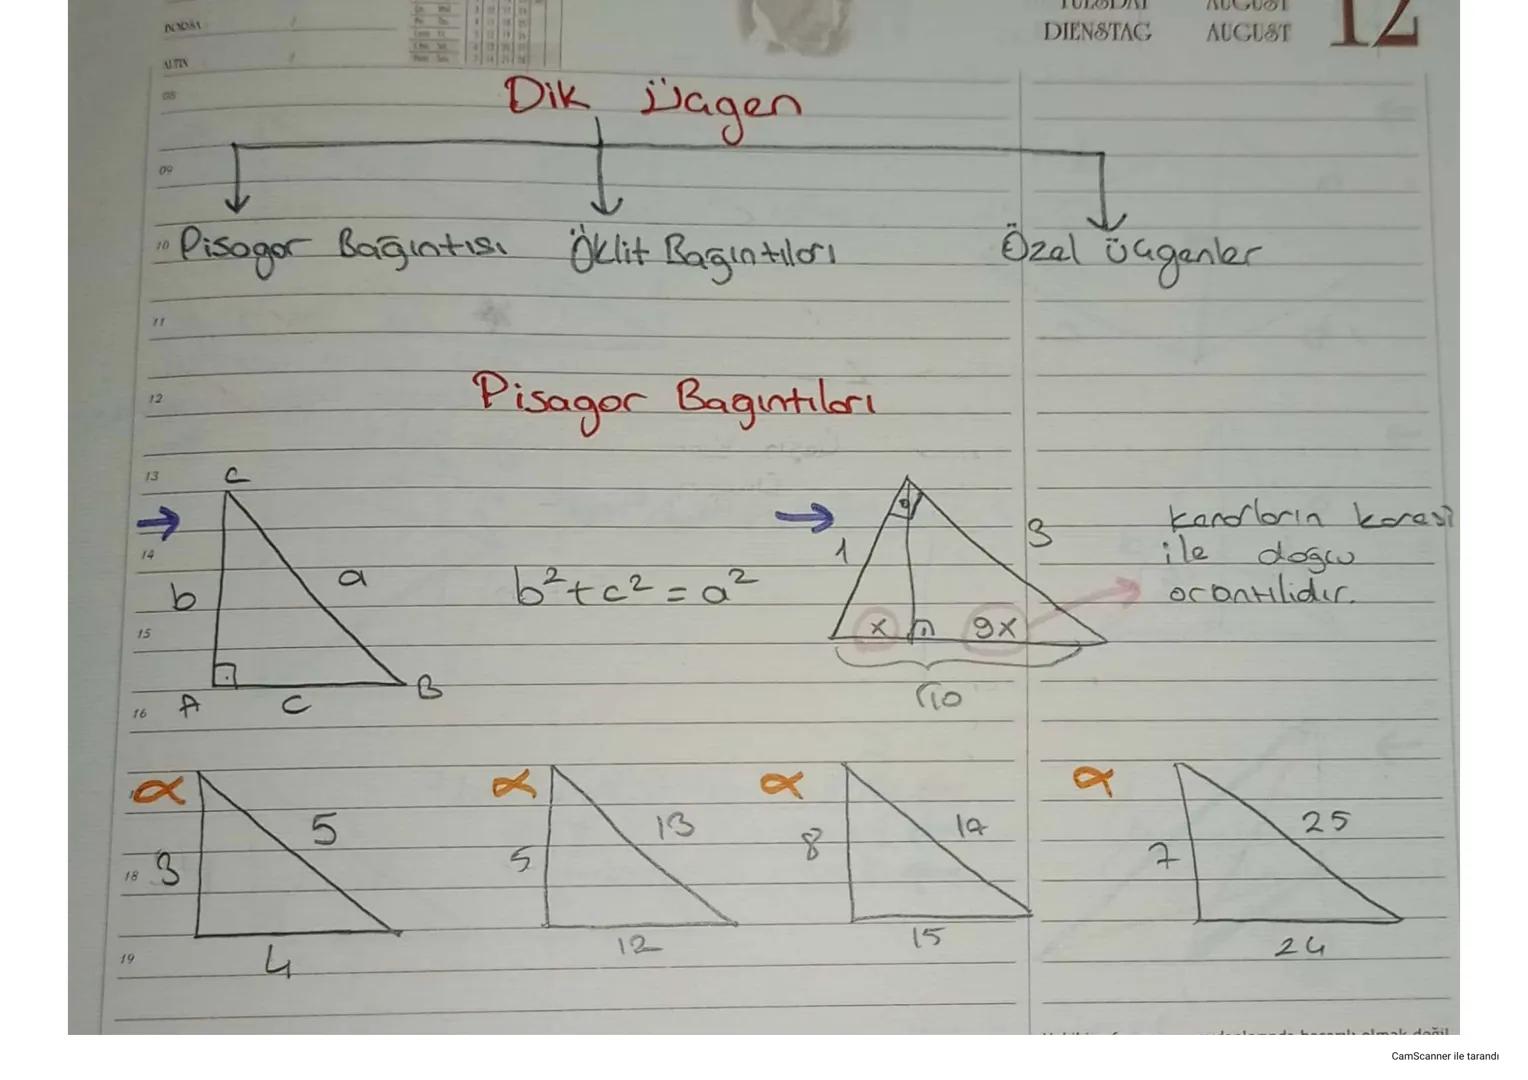 DIENSTAG AUGUST 12
ALTIN
08
Dik üçgen
09
10 Pisagor Bağıntısı Öklit Bağıntıları Özel üçgenler
11
12 Pisagor Bagıntıları
13
C
14
b a b²+c²=a²
1 3 x 9x
√10
kenarların karesi
ile doğru
orantılıdır.
15
A c B
16
α 3 5 4
α 5 13 12
α 8 17 15
α 7 25 24
18
19
CamScanner ile tarandı